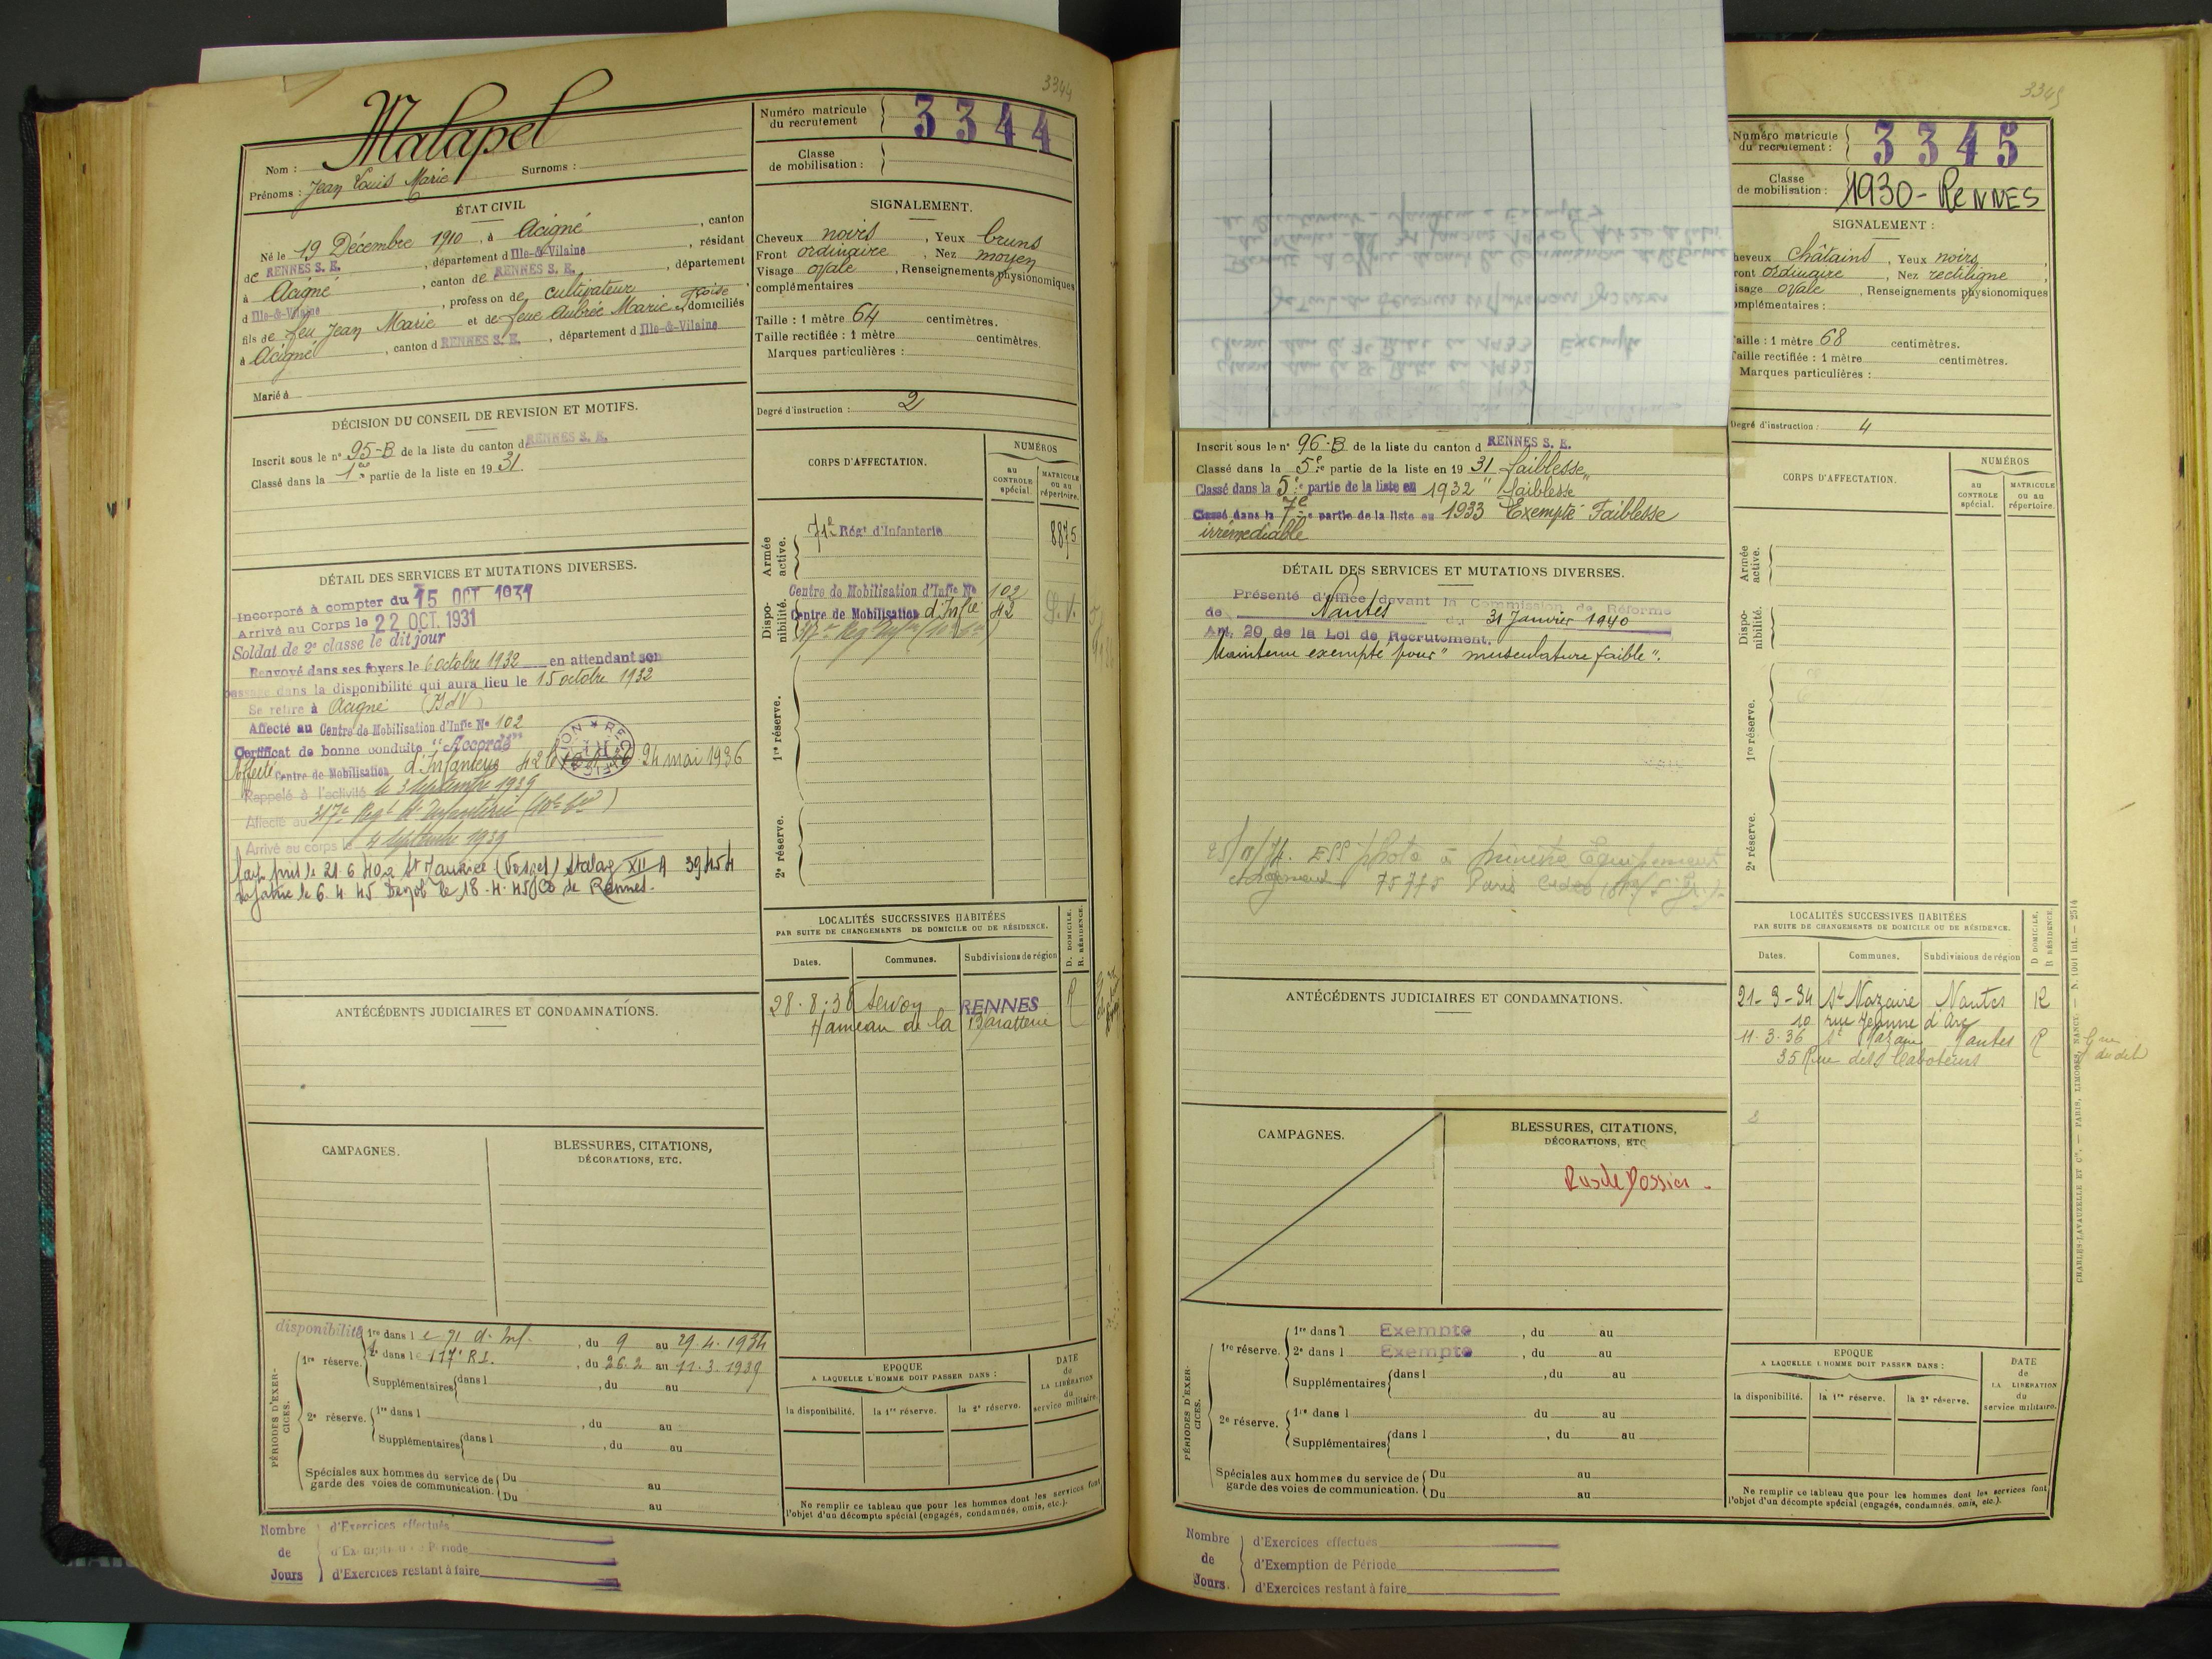 3344
Malapel
Nom :
Prénoms : Jean Louis Marie Surnoms :
ÉTAT CIVIL
Né le 19 Décembre 1910, à Acigné, canton
de RENNES S. E., département d Ille-&-Vilaine, résidant
à Acigné, canton de RENNES S. E., département
d Ille-&-Vilaine, profession de cultivateur
fils de feu Jean Marie et de feue Aubrée Marie Fçoise, domiciliés
à Acigné, canton d RENNES S. E., département d Ille-&-Vilaine
Marié à
DÉCISION DU CONSEIL DE REVISION ET MOTIFS.
Inscrit sous le n° 95-B de la liste du canton d RENNES S. E.
Classé dans la 1re partie de la liste en 1931.
DÉTAIL DES SERVICES ET MUTATIONS DIVERSES.
Incorporé à compter du 15 OCT 1931
Arrivé au Corps le 22 OCT. 1931
Soldat de 2e classe le dit jour
Renvoyé dans ses foyers le 6 octobre 1932 en attendant son
passage dans la disponibilité qui aura lieu le 15 octobre 1932
Se retire à Acigné (I et V)
Affecté au Centre de Mobilisation d'Infie No 102
Certificat de bonne conduite "Accordé"
Affecté Centre de Mobilisation d'Infanterie 42 le 24 mai 1936
Rappelé à l'activité le 3 septembre 1939
Affecté au 317e Regt d'Infanterie (10e Cie)
Arrivé au corps le 4 septembre 1939
fait pris le 21.6.40 à St Maurice (Vosges) Stalag XII A 39454
rapatrié le 6.4.45 Démob le 18.4.45 de Rennes.
ANTÉCÉDENTS JUDICIAIRES ET CONDAMNATIONS.
CAMPAGNES.
BLESSURES, CITATIONS,
DÉCORATIONS, ETC.
PÉRIODES D'EXERCICES.
disponibilité 1re dans l e 71 d'Inf., du 9 au 29.4.1934
1re réserve. 2e dans l e 117e R.I., du 26.2 au 11.3.1939
Supplémentaires dans l, du au
2e réserve. 1re dans l, du au
Supplémentaires dans l, du au
Spéciales aux hommes du service de garde des voies de communication. Du au
Du au
Nombre de Jours
d'Exercices effectués
d'Exemption de Période
d'Exercices restant à faire
Numéro matricule du recrutement 3344
Classe de mobilisation :
SIGNALEMENT.
Cheveux noirs, Yeux bruns
Front ordinaire, Nez moyen
Visage ovale, Renseignements physionomiques
complémentaires
Taille : 1 mètre 64 centimètres.
Taille rectifiée : 1 mètre centimètres.
Marques particulières :
Degré d'instruction : 2
CORPS D'AFFECTATION.
NUMÉROS
au CONTROLE spécial.
MATRICULE ou au répertoire.
Armée active.
71e Régt d'Infanterie 8875
Disponibilité.
Centre de Mobilisation d'Infie No 102
Centre de Mobilisation d'Infie 42
1re réserve.
2e réserve.
LOCALITÉS SUCCESSIVES HABITÉES
PAR SUITE DE CHANGEMENTS DE DOMICILE OU DE RÉSIDENCE.
D. DOMICILE.
R. RÉSIDENCE.
Dates. Communes. Subdivisions de région
28.8.38 Servon RENNES R
Hameau de la Baratterie
EPOQUE
A LAQUELLE L'HOMME DOIT PASSER DANS :
DATE de LA LIBÉRATION du service militaire.
la disponibilité. la 1re réserve. la 2e réserve.
Ne remplir ce tableau que pour les hommes dont les services font
l'objet d'un décompte spécial (engagés, condamnés, omis, etc.).
3345
Inscrit sous le n° 96-B de la liste du canton d RENNES S. E.
Classé dans la 5e partie de la liste en 1931 faiblesse
Classé dans la 5e partie de la liste en 1932 "faiblesse"
Classé dans la 7e partie de la liste en 1933 Exempté Faiblesse
irrémédiable
DÉTAIL DES SERVICES ET MUTATIONS DIVERSES.
Présenté d'office devant la Commission de Réforme
de Nantes du 31 Janvier 1940
Art. 20 de la Loi de Recrutement.
Maintenu exempté pour "musculature faible".
25/11/74. ESS photo à ministre Equipement
et Logement 75775 Paris Cedex
ANTÉCÉDENTS JUDICIAIRES ET CONDAMNATIONS.
CAMPAGNES.
BLESSURES, CITATIONS,
DÉCORATIONS, ETC
Pas de Dossier -
PÉRIODES D'EXERCICES.
1re réserve. 1re dans l Exempté, du au
2e dans l Exempté, du au
Supplémentaires dans l, du au
2e réserve. 1re dans l du au
Supplémentaires dans l, du au
Spéciales aux hommes du service de garde des voies de communication. Du au
Du au
Nombre de Jours.
d'Exercices effectués
d'Exemption de Période
d'Exercices restant à faire
Numéro matricule du recrutement : 3345
Classe de mobilisation : 1930 - RENNES
SIGNALEMENT :
heveux Châtains, Yeux noirs,
ront ordinaire, Nez rectiligne
isage ovale, Renseignements physionomiques
omplémentaires :
Taille : 1 mètre 68 centimètres.
Taille rectifiée : 1 mètre centimètres.
Marques particulières :
Degré d'instruction : 4
CORPS D'AFFECTATION.
NUMÉROS
au CONTROLE spécial.
MATRICULE ou au répertoire.
Armée active.
Disponibilité.
1re réserve.
2e réserve.
LOCALITÉS SUCCESSIVES HABITÉES
PAR SUITE DE CHANGEMENTS DE DOMICILE OU DE RÉSIDENCE.
D DOMICILE,
R RÉSIDENCE.
Dates. Communes. Subdivisions de région
21-9-34 St Nazaire Nantes R
10 rue Jeanne d'Arc
11.3.36 St Nazaire Nantes R
35 Rue des Caboteurs
EPOQUE
A LAQUELLE L'HOMME DOIT PASSER DANS :
DATE de LA LIBÉRATION du service militaire.
la disponibilité. la 1re réserve. la 2e réserve.
Ne remplir ce tableau que pour les hommes dont les services font
l'objet d'un décompte spécial (engagés, condamnés, omis, etc.).
CHARLES-LAVAUZELLE ET Cie. — PARIS, LIMOGES, NANCY. — N. 1001 int. — 2514